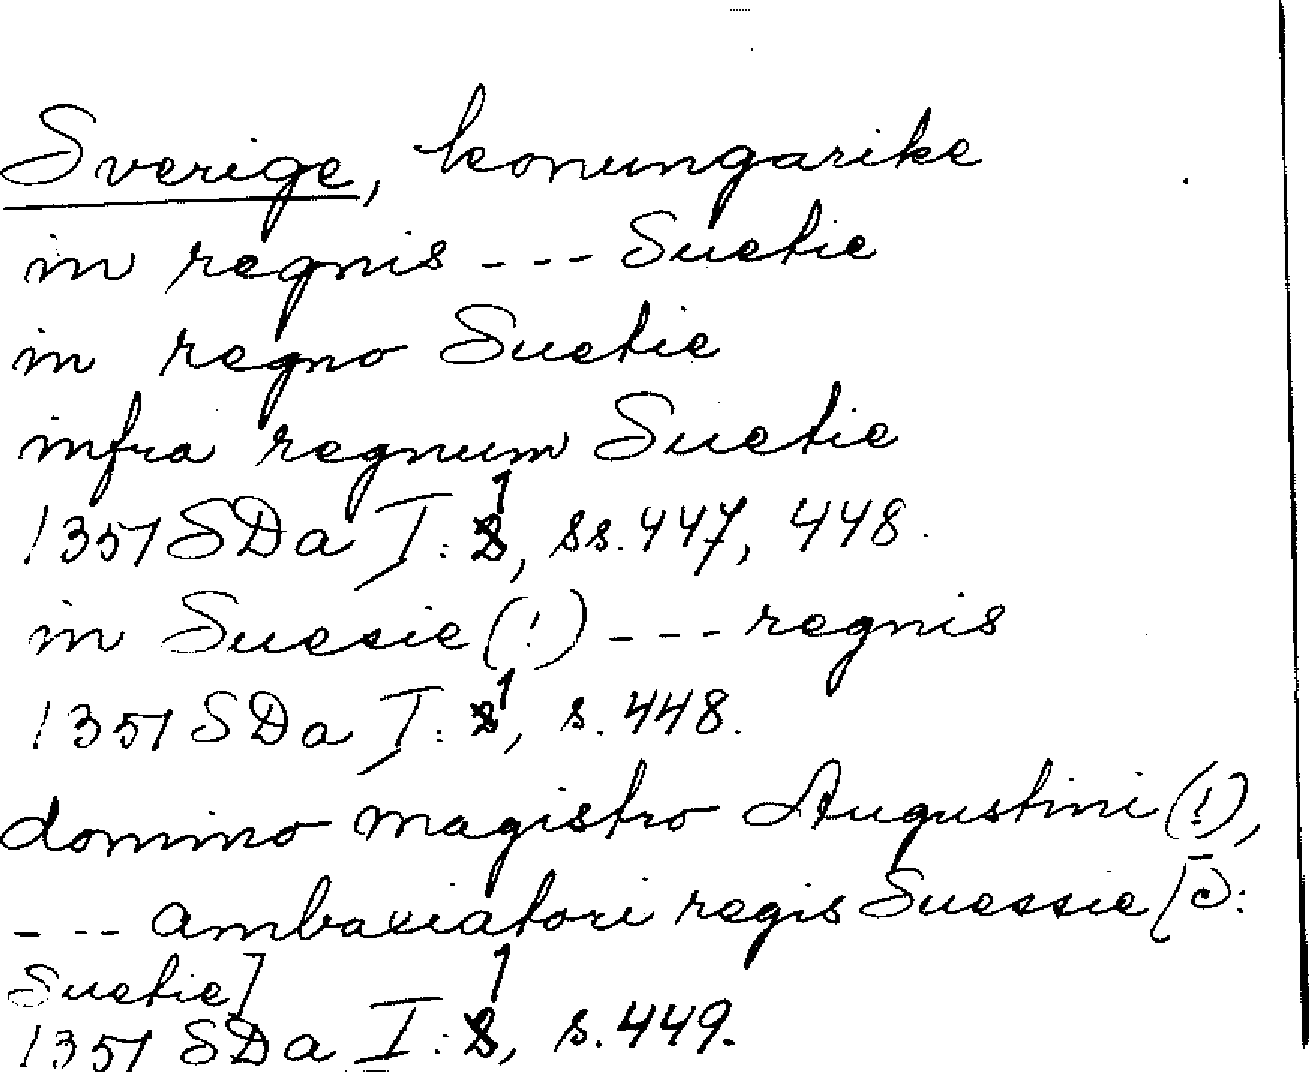 Sverige, konungarike
in regnis --- Suetie
in regno Suetie
infra regnum Suetie
1351 SDa I:1, ss. 447, 448.
in Suesie (!) --- regnis
1351 SDa I:1, s. 448.
domino magistro Augustini (!),
--- ambaxiatori regis Suessie [Ɔ:
Suetie]
1351 SDa I:1, s. 449.